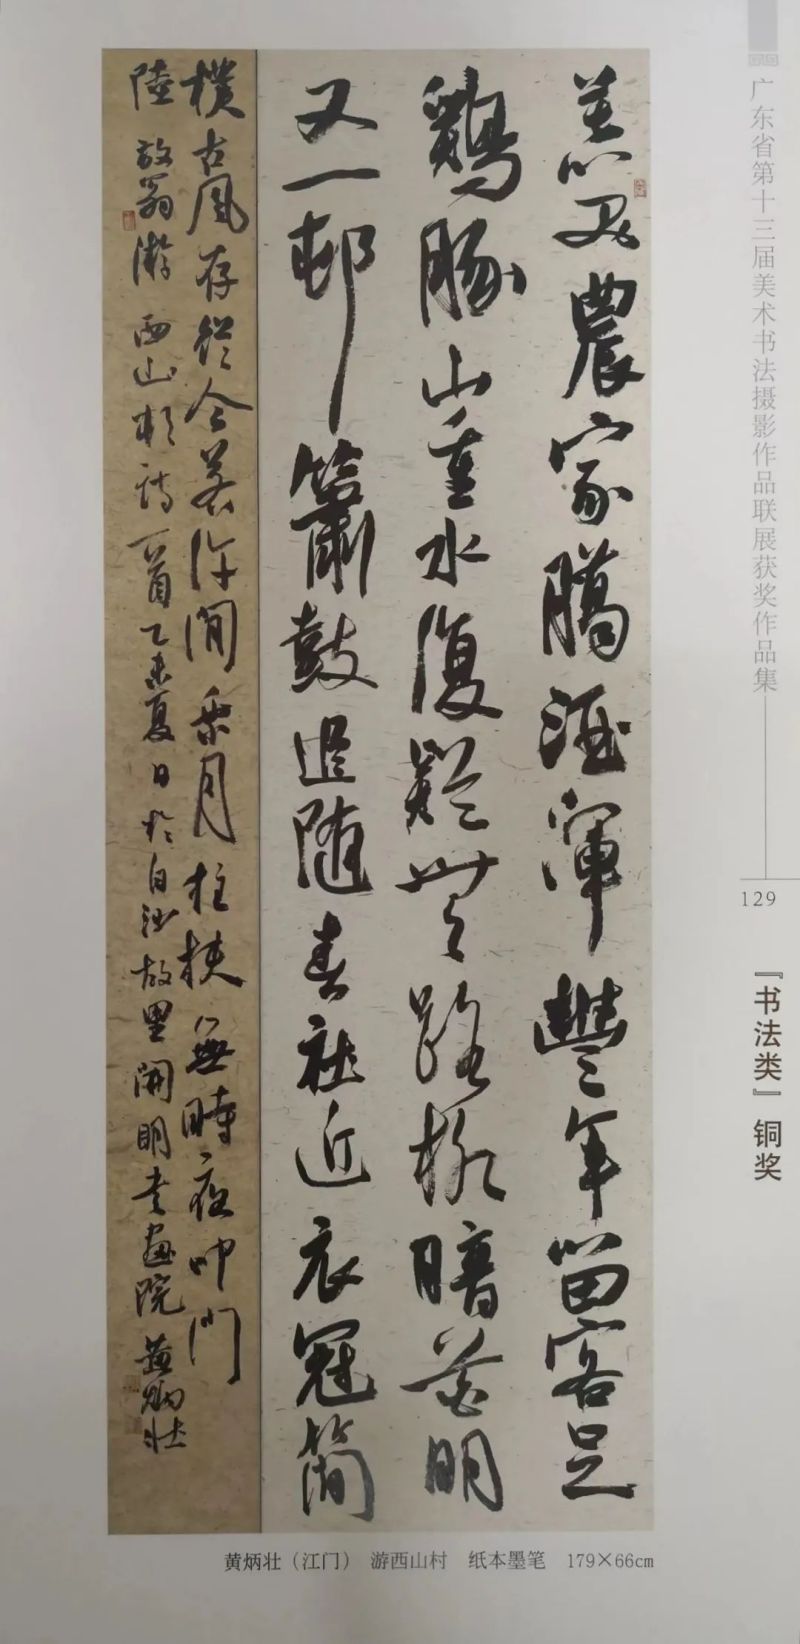 广东省第十三届美术书法摄影作品联展获奖作品集
129
『书法类』铜奖
莫笑農家臘酒渾豐年留客足
鷄豚山重水復疑無路柳暗花明
又一邨簫鼓追随春社近衣冠簡
樸古風存從今若許閒乘月拄杖無時夜叩門
陸放翁游西山村詩一首乙未夏日於白沙故里開明書畫院黃炳壯
黄炳壮（江门） 游西山村 纸本墨笔 179×66cm